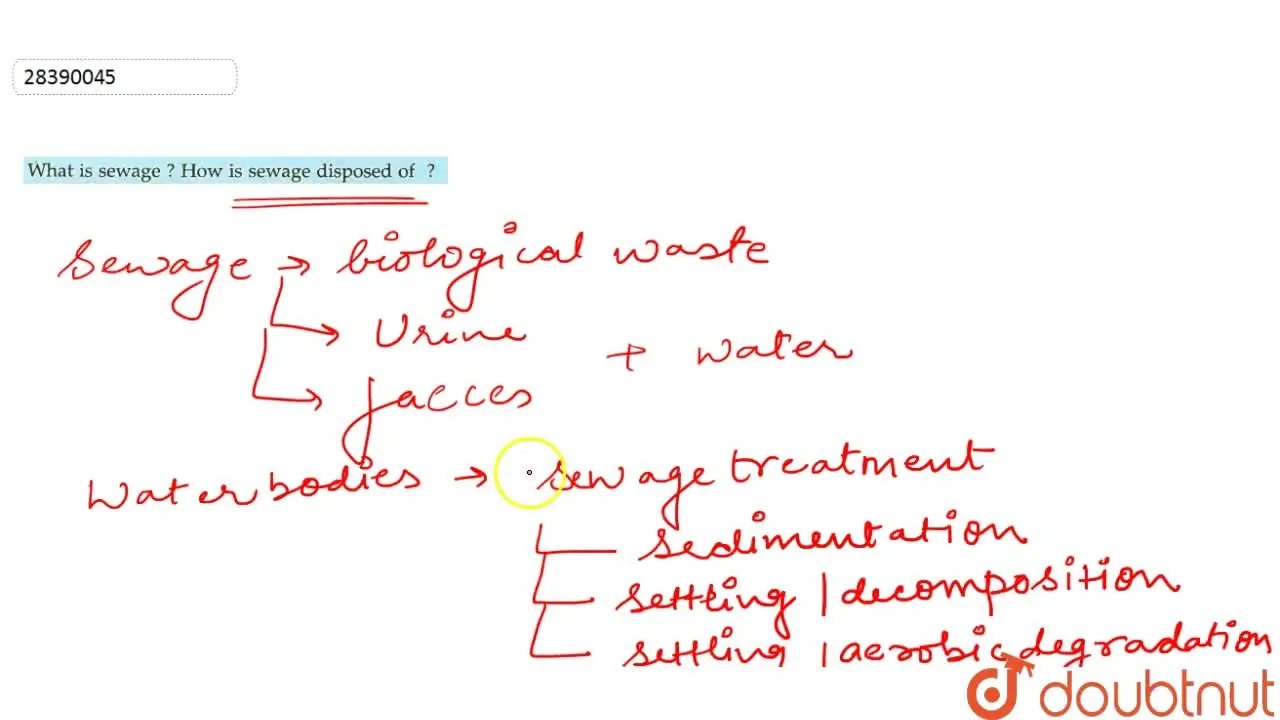 28390045
What is sewage ? How is sewage disposed of ?
Sewage → biological waste
→ Urine
+ water
→ faeces
Water bodies → sewage treatment
sedimentation
settling | decomposition
settling | aerobic degradation
doubtnut